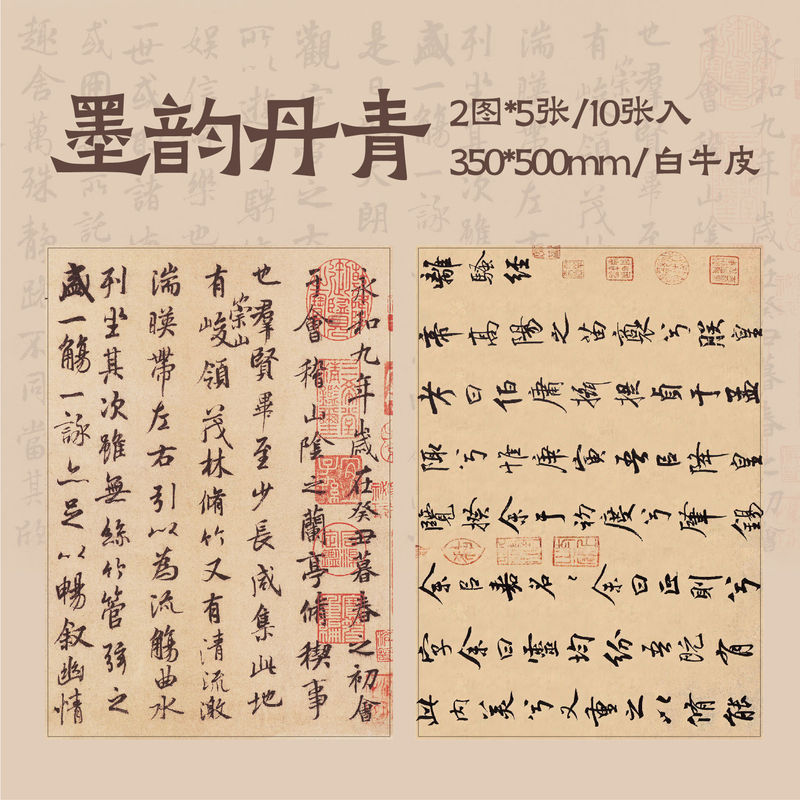 墨韵丹青
2图*5张/10张入
350*500mm/白牛皮
永和九年歲在癸丑暮春之初會
于會稽山陰之蘭亭脩稧事
也羣賢畢至少長咸集此地
有崇山峻領茂林脩竹又有清流激
湍暎帶左右引以為流觴曲水
列坐其次雖無絲竹管弦之
盛一觴一詠亦足以暢敘幽情
離騷經
帝高陽之苗裔兮朕皇
考曰伯庸攝提貞于孟
陬兮惟庚寅吾㠯降皇
覽揆余于初度兮肇錫
余㠯嘉名〻余曰正則兮
字余曰靈均紛吾既有
此内美兮又重之以脩能